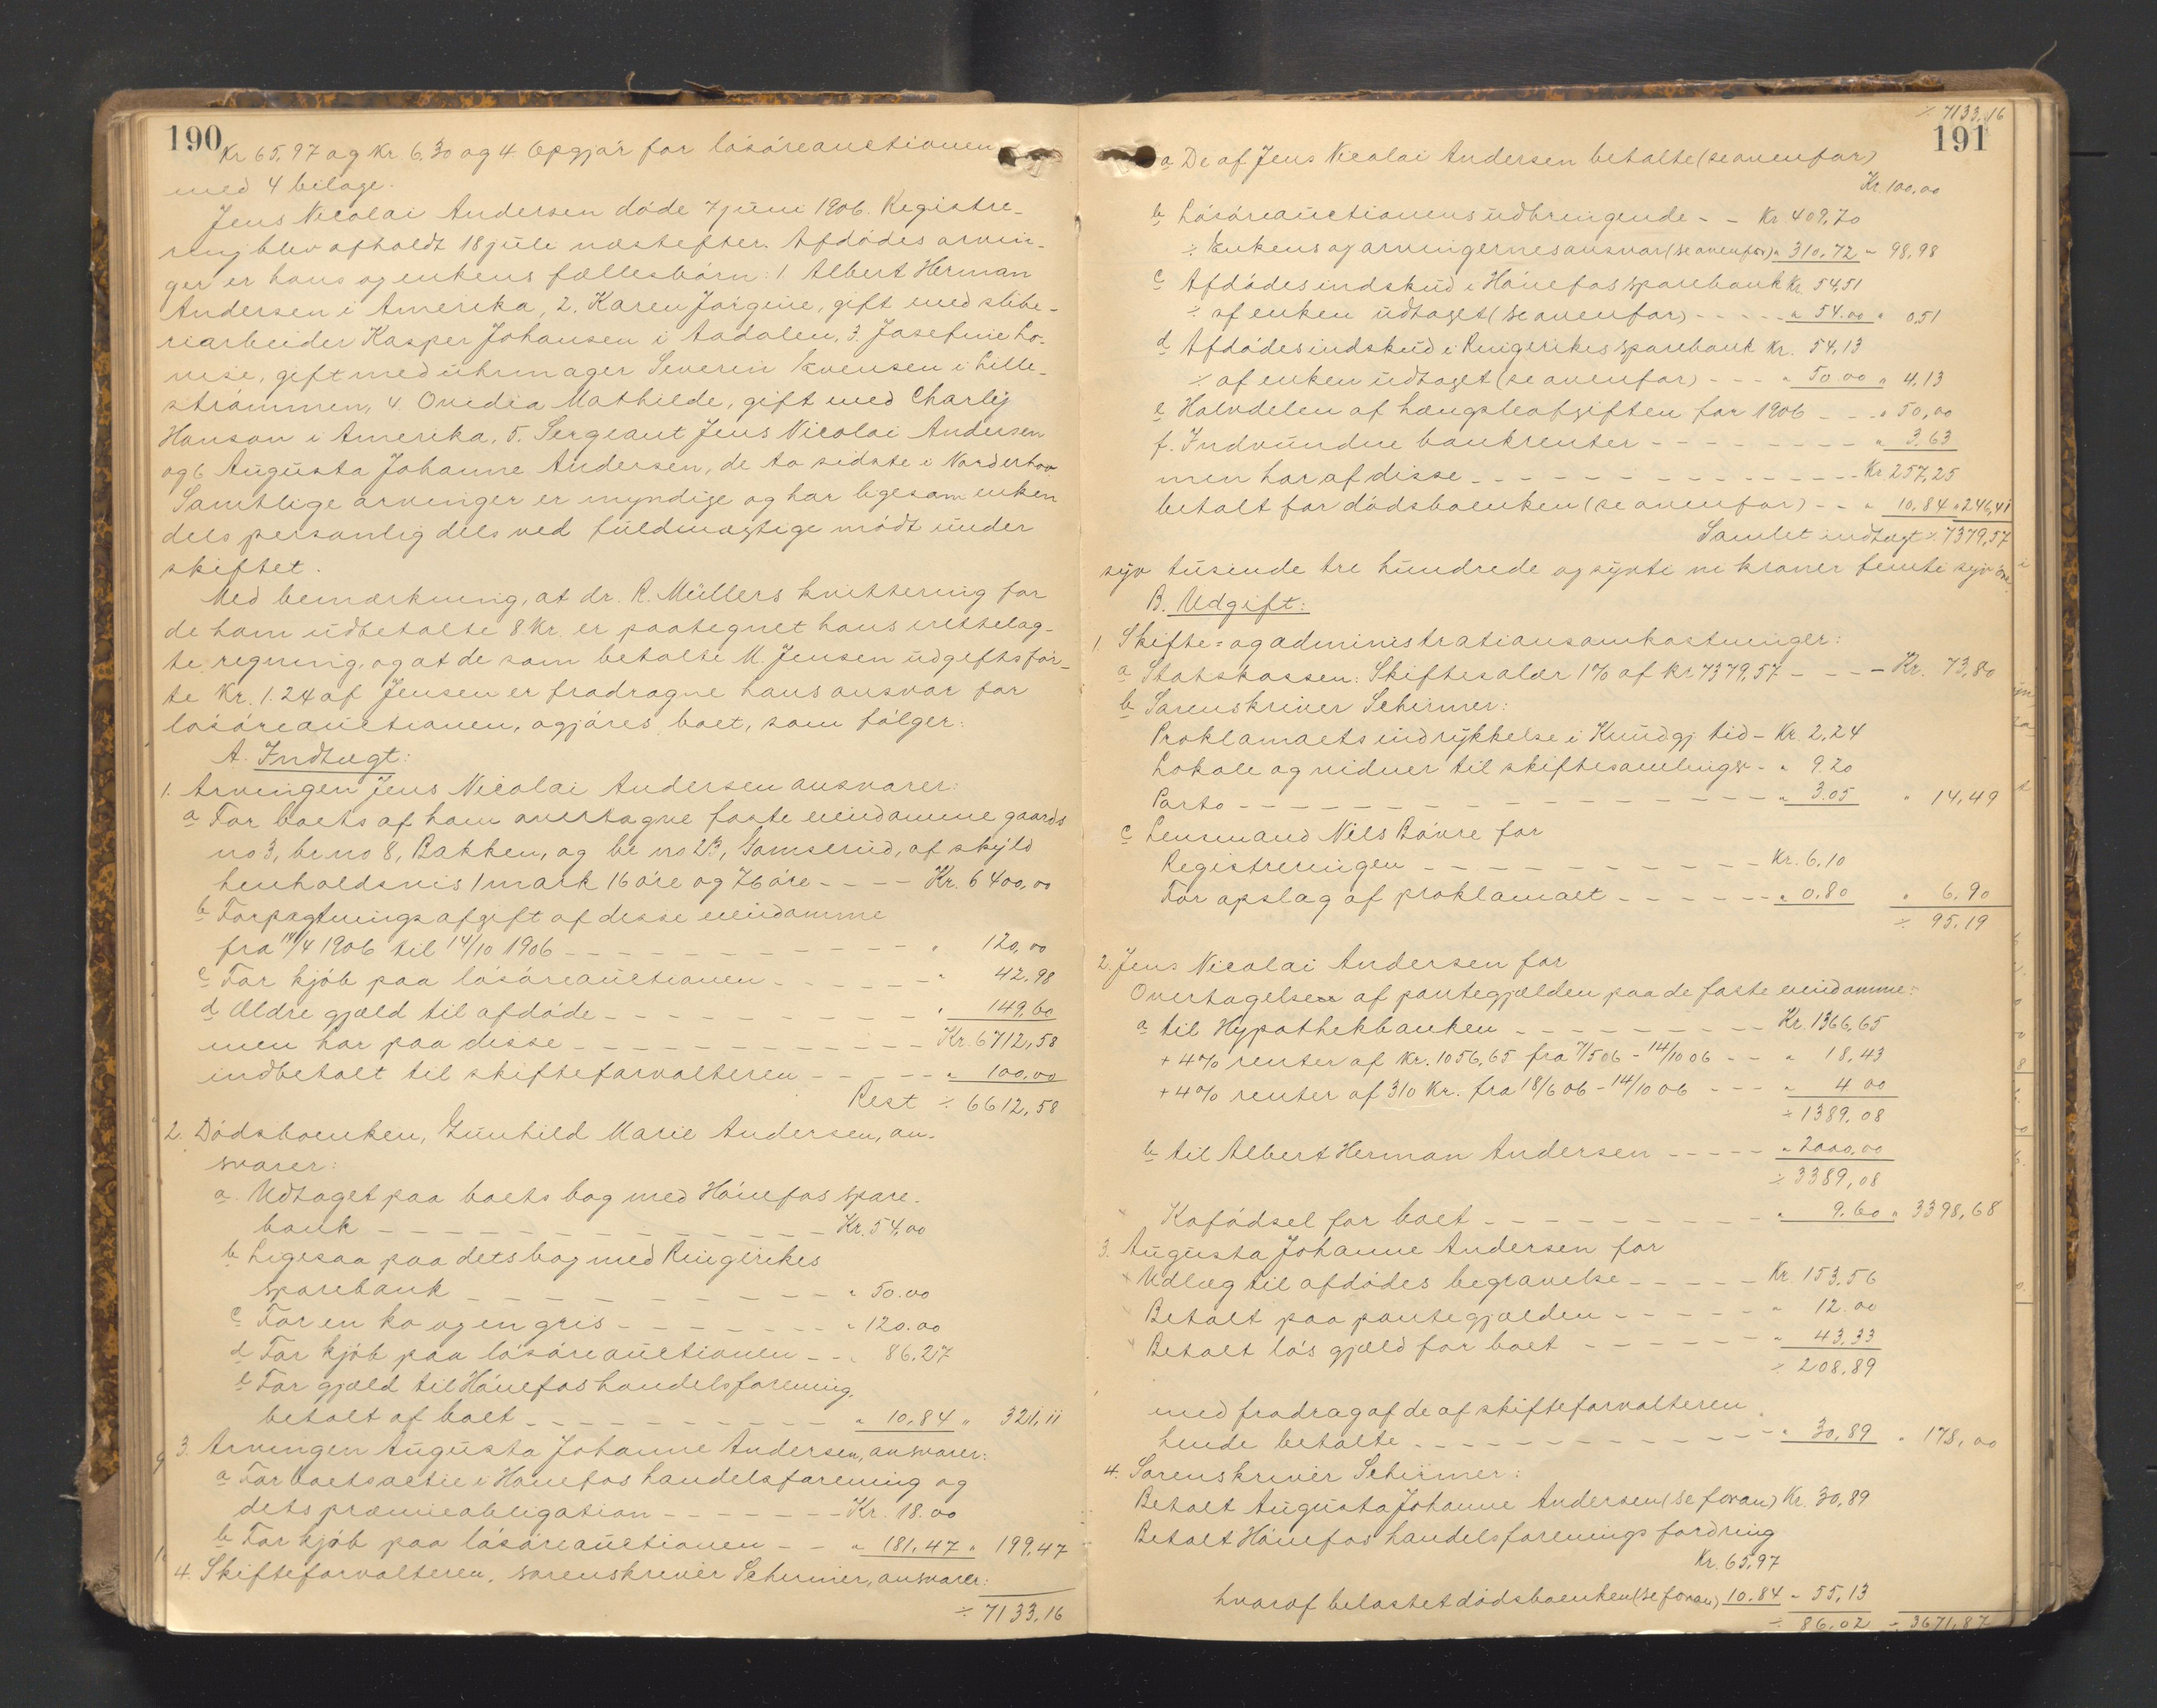 190
Kr 65,97 og Kr. 6,30 og 4 Opgjør for løsøreauctionen
med 4 bilage.
Jens Nicolai Andersen døde 7 juni 1906. Registre-
ring blev afholdt 18 juli næstefter. Afdødes arvin-
ger er hans og enkens fællesbørn: 1 Albert Herman
Andersen i Amerika, 2. Karen Jørgine, gift med slibe-
riarbeider Kasper Johansen i Aadalen, 3. Josefine Lo-
vise, gift med uhrmager Severin Evensen i Lille-
strømmen, 4. Ovedia Mathilde, gift med Charley
Hanson i Amerika, 5. Sergeant Jens Nicolai Andersen
og 6 Augusta Johanne Andersen, de to sidste i Norderhov
Samtlige arvinger er myndige og har ligesom enken
dels personlig dels ved fuldmægtige mødt under
skiftet.
Med bemærkning, at dr. R. Müllers kvittering for
de ham udbetalte 8 Kr. er paategnet hans vedlag-
te regning, og at de som betalte M. Jensen udgiftsfør-
te Kr. 1.24 af Jensen er fradragne hans ansvar for
løsøreauctionen, opgjøres boet, som følger:
A. Indtægt:
1. Arvingen Jens Nicolai Andersen ansvarer:
a For boets af ham overtagne faste eiendomme gaards
no 3, br. no 8, Bakken, og br no 23, Gomserud, af skyld
henholdsvis 1 mark 16 øre og 76 øre - - - - Kr. 6400,00
b Forpagtningsafgift af disse eiendomme
fra 14/4 1906 til 14/10 1906 - - - - " 120,00
c For kjøb paa løsøreauctionen - - - - " 42,98
d Ældre gjæld til afdøde - - - - " 149,60
men har paa disse - - - - Kr. 6712,58
indbetalt til skifteforvalteren - - - - " 100,00
Rest ÷ 6612,58
2. Dødsboenken, Gunhild Marie Andersen, an-
svarer:
a. Udtaget paa boets bog med Hønefos spare-
bank - - - - Kr. 54,00
b Ligesaa paa dets bog med Ringerikes
sparebank - - - - " 50.00
c For en ko og en gris - - - - " 120.00
d For kjøb paa løsøreauctionen - - " 86,27
e For gjæld til Hønefos handelsforening,
betalt af boet - - - - " 10,84 " 321,11
3. Arvingen Augusta Johanne Andersen, ansvarer:
a For boets actie i Hønefos handelsforening og
dets præmieobligation - - - - Kr. 18.00
b For kjøb paa løsøreauctionen - - " 181,47 " 199,47
4. Skifteforvalteren, sorenskriver Schirmer, ansvarer:
÷ 7133,16
÷ 7133,16
191
a De af Jens Nicolai Andersen betalte (se ovenfor)
Kr. 100,00
b Løsøreauctionens udbringende - - Kr 409,70
÷ Enkens og arvingernes ansvar (se ovenfor) " 310,72 " 98,98
c Afdødes indskud i Hønefos sparebank Kr. 54,51
÷ af enken udtaget (se ovenfor) - - - - " 54.00 " 0,51
d Afdødes indskud i Ringerikes sparebank Kr. 54,13
÷ af enken udtaget (se ovenfor) - - - " 50.00 " 4,13
e Halvdelen af længsleafgiften for 1906 - - - " 50,00
f. Indvundne bankrenter - - - - " 3,63
men har af disse - - - - Kr 257,25
betalt for dødsboenken (se ovenfor) - - " 10,84 " 246,41
Samlet indtægt ÷ 7379,57
syv tusinde tre hundrede og sytti ni kroner femti syv øre.
B. Udgift:
1. Skifte= og administrationsomkostninger:
a Statskassen: Skiftesalær 1% af kr 7379,57 - - - Kr. 73,80
b Sorenskriver Schirmer:
Proklamaets indrykkelse i Kundgj. tid - Kr. 2,24
Lokale og vidner til skiftesamlinger - " 9.20
Porto - - - - " 3.05 " 14,49
c Lensmand Nils Bøvre for
Registreringen - - - - Kr. 6,10
For opslag af proklamaet - - - - " 0,80 " 6,90
÷ 95,19
2. Jens Nicolai Andersen for
Overtagelsen af pantegjælden paa de faste eiendomme:
a til Hypothekbanken - - - - Kr. 1366,65
+ 4% renter af Kr. 1056,65 fra 7/5 06 - 14/10 06 - - " 18,43
+ 4% renter af 310 Kr. fra 18/6 06 - 14/10 06 - - - " 4 00
÷ 1389,08
b til Albert Herman Andersen - - - - " 2000,00
÷ 3389,08
Kofødsel for boet - - - - " 9,60 " 3398,68
3. Augusta Johanne Andersen for
Udlæg til afdødes begravelse - - - - Kr. 153,56
Betalt paa pantegjælden - - - - " 12.00
Betalt løs gjæld for boet - - - - " 43,33
÷ 208,89
med fradrag af de af skifteforvalteren
hende betalte - - - - " 30,89 " 178,00
4. Sorenskriver Schirmer:
Betalt Augusta Johanne Andersen (se foran) Kr. 30,89
Betalt Hønefos handelsforenings fordring
Kr. 65,97
hvoraf belastet dødsboenken (se foran) 10.84 - 55,13
÷ 86,02 - 3671,87